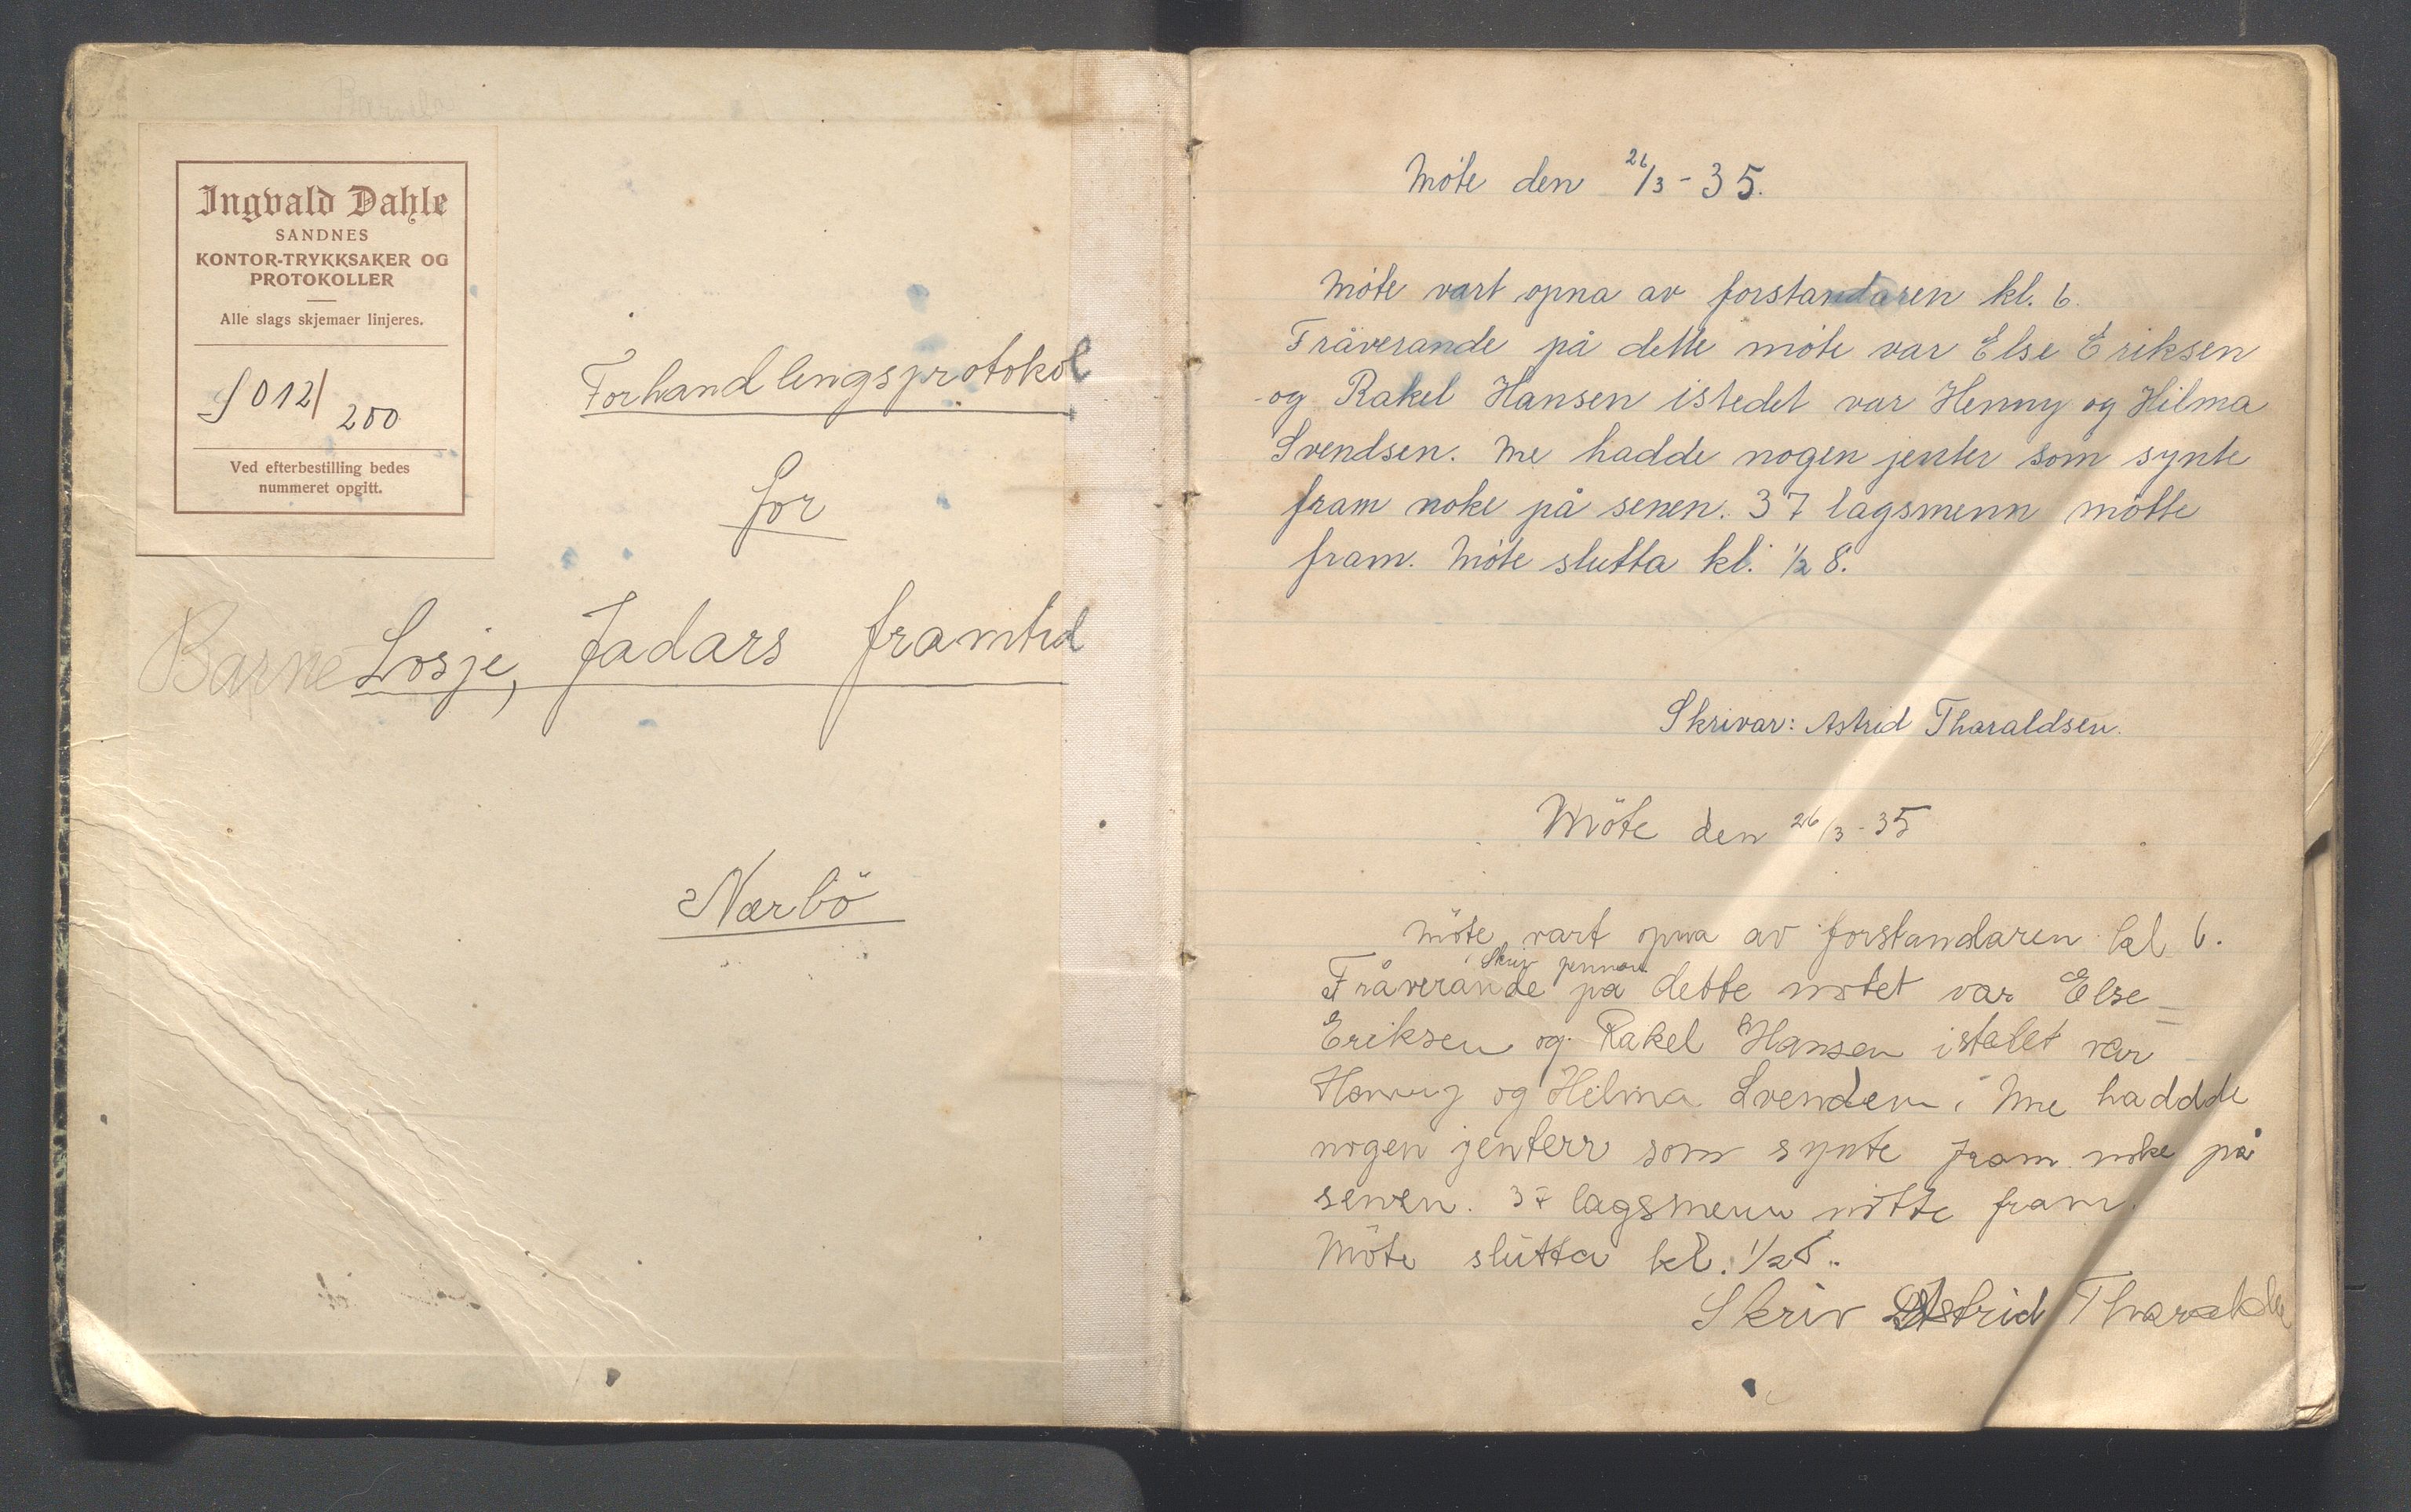 Barnelo
Ingvald Dahle
SANDNES
KONTOR-TRYKKSAKER OG
PROTOKOLLER
Alle slags skjemaer linjeres.
S 012/
200
Ved efterbestilling bedes
nummeret opgitt.
Forhandlingsprotokol
for
Barne Losje, Jadars framtid
Nærbö
Möte den 26/3 - 35.
Möte vart opna av forstandaren kl. 6.
Fråverande på dette möte var Else Eriksen
og Rakel Hansen istedet var Henny og Hilma
Svendsen. Me hadde nogen jenter som synte
fram noke på senen. 37 lagsmenn mötte
fram. Möte slutta kl. 1/2 8.
Skrivar: Astrid Tharaldsen.
Möte den 26/3 - 35
Möte vart opna av forstandaren kl 6.
Skriv pennan
Fråverande på dette motet var Else
Eriksen og Rakel Hansen istalet var
og Hilma Svenden. Me haddde
nogen jenterr som synte fram noke på
senen. 37 lagsmenn mötte fram.
Möte slutta kl. 1/2 8.
Skriv Astrid